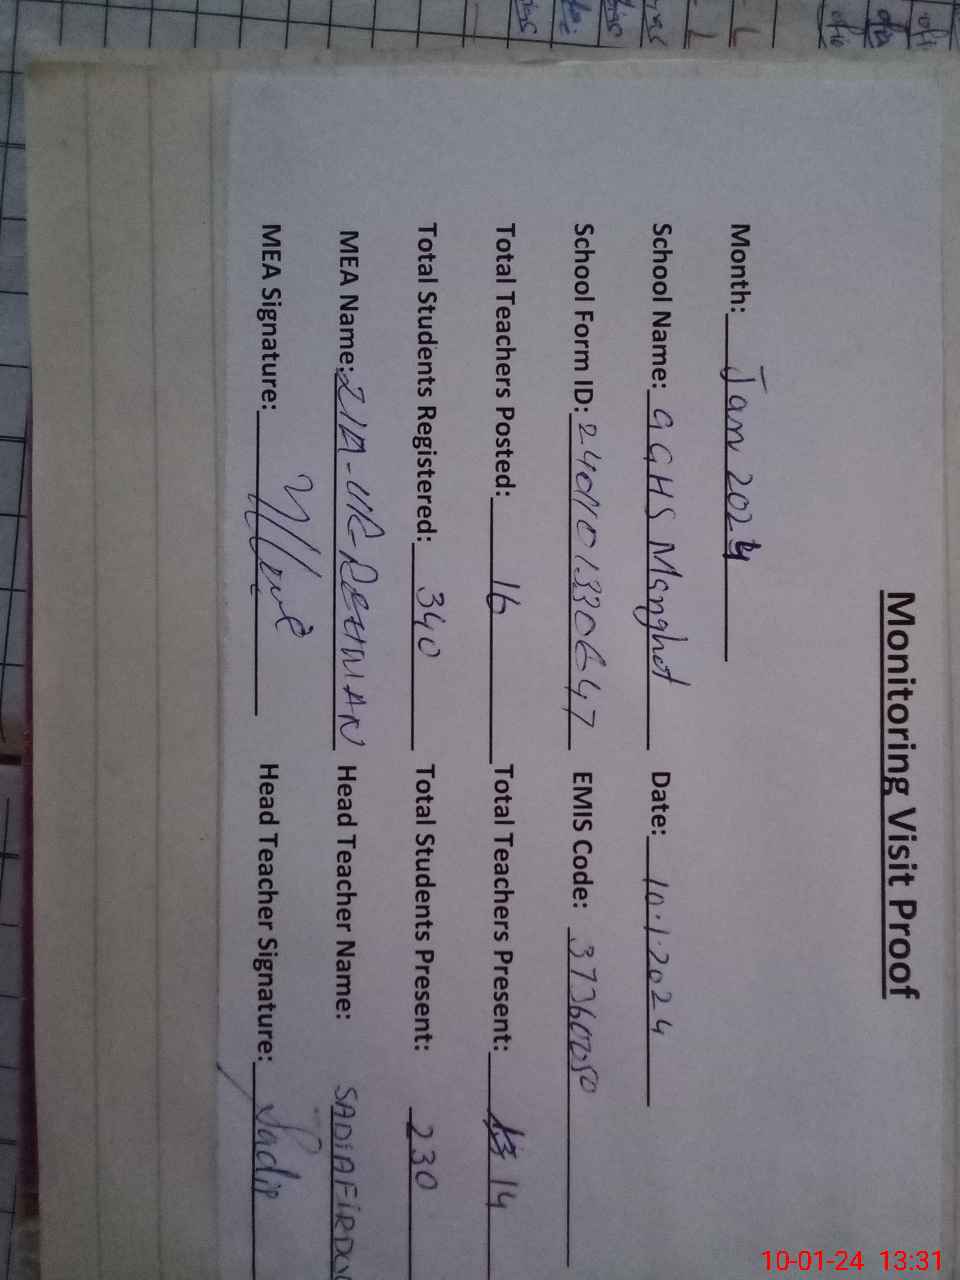 Monitoring Visit Proof
Month: Jan 2024
School Name: GGHS Manghot Date: 10.1.2024
School Form ID: 2401101330647 EMIS Code: 37360050
Total Teachers Posted: 16 Total Teachers Present: 14
Total Students Registered: 340 Total Students Present: 230
MEA Name: ZIA-UR-REHMAN Head Teacher Name: SADIA FIRDOU
MEA Signature: Head Teacher Signature: Sadia
10-01-24 13:31